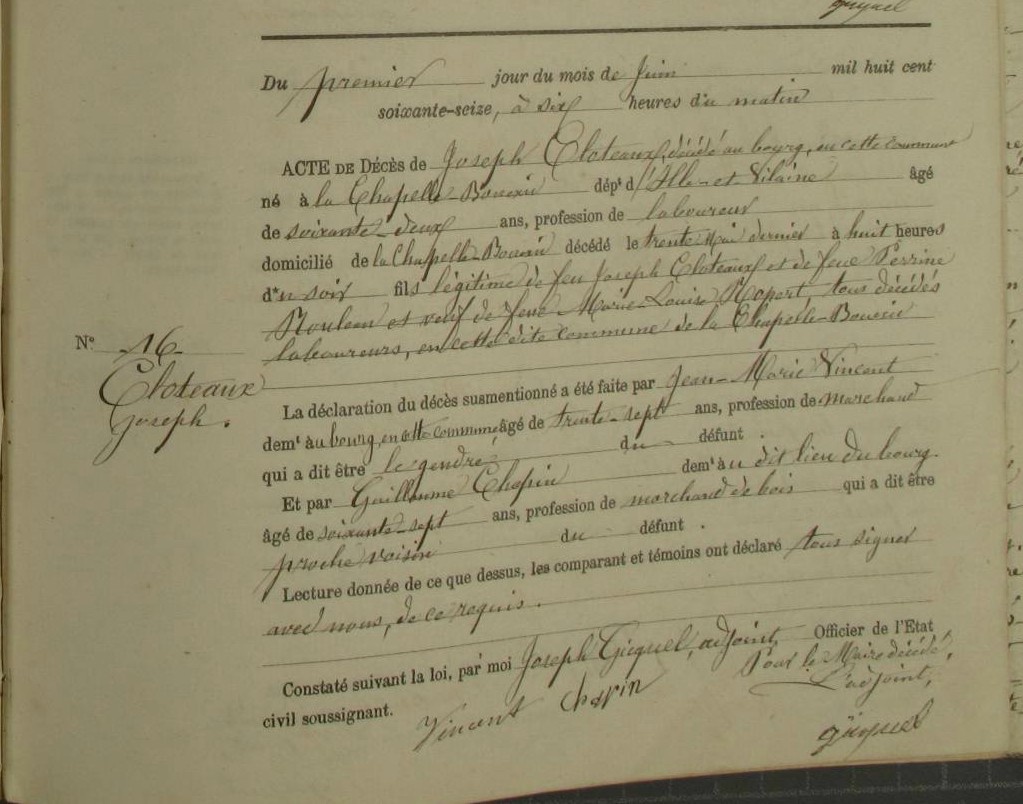 gicquel
Du premier jour du mois de Juin mil huit cent
soixante-seize, à six heures du matin
ACTE DE DÉCÈS de Joseph Cloteaux, décédé au bourg, en cette commune
né à la Chapelle-Bouexic dépt d'Ille-et-Vilaine âgé
de soixante-deux ans, profession de laboureur
domicilié de la Chapelle-Bouexic décédé le trente Mai dernier à huit heures
du soir fils légitime de feu Joseph Cloteaux et de feue Perrine
Rouleau et veuf de feue Marie-Louise Ropert, tous décédés
laboureurs, en cette dite commune de la Chapelle-Bouexic
No 16
Cloteaux
Joseph.
La déclaration du décès susmentionné a été faite par Jean-Marie Vincent
demt au bourg, en cette commune âgé de trente-sept ans, profession de marchand
qui a dit être le gendre du défunt.
Et par Guillaume Chopin demt au dit lieu du bourg
âgé de soixante-sept ans, profession de marchand de bois qui a dit être
proche voisin du défunt.
Lecture donnée de ce que dessus, les comparant et témoins ont déclaré tous signer
avec nous, de ce requis.
Constaté suivant la loi, par moi Joseph Gicquel, adjoint, Officier de l'État
civil soussignant.
Pour le Maire décédé,
L'adjoint,
Vincent Chopin
gicquel